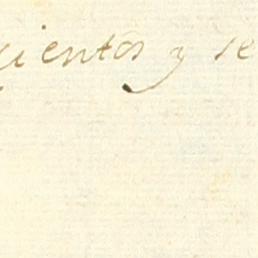 cientos y se